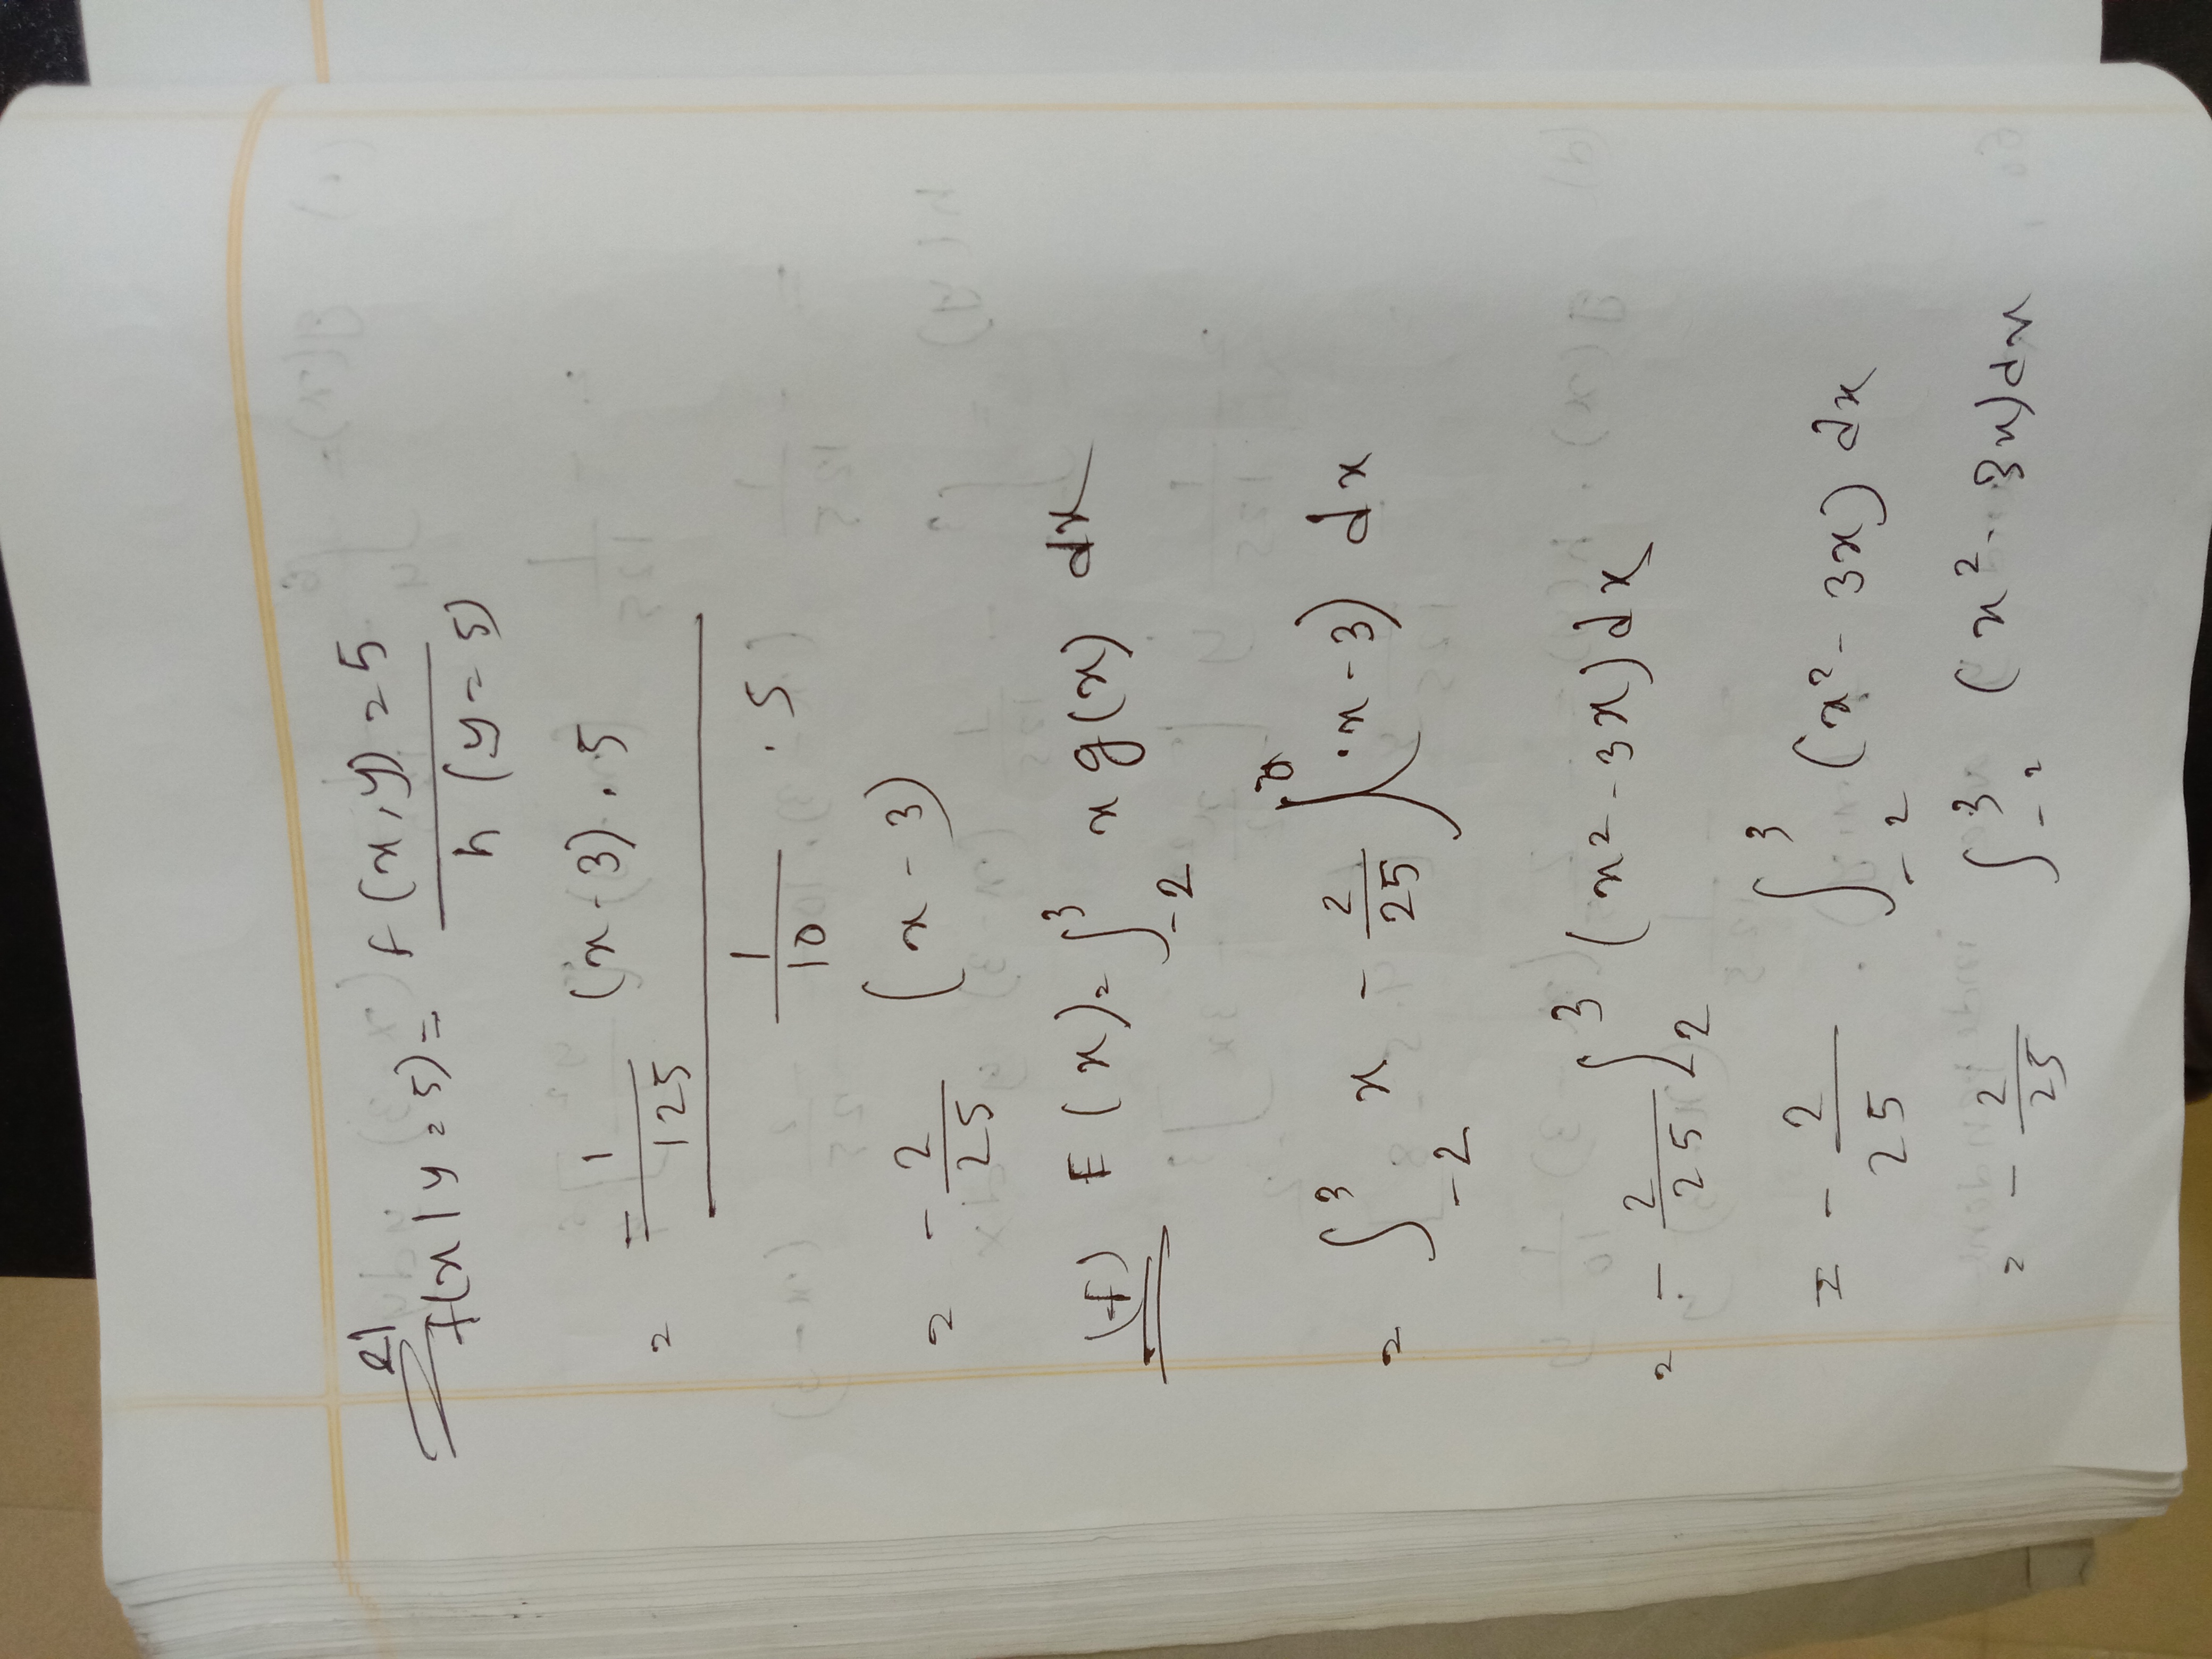 e)
f(x|y=5) = f(x,y)=5 / h(y=5)
= -1/125 (x-3).5 / 1/10 .5
= -2/25 (x-3)
(f) E(x) = ∫_{-2}^{3} x g(x) dx
= ∫_{-2}^{3} x -2/25 (x-3) dx
= -2/25 ∫_{-2}^{3} (x²-3x) dx
= -2/25 ∫_{-2}^{3} (x²-3x) dx
= -2/25 ∫_{-2}^{3} (x²-3x) dx